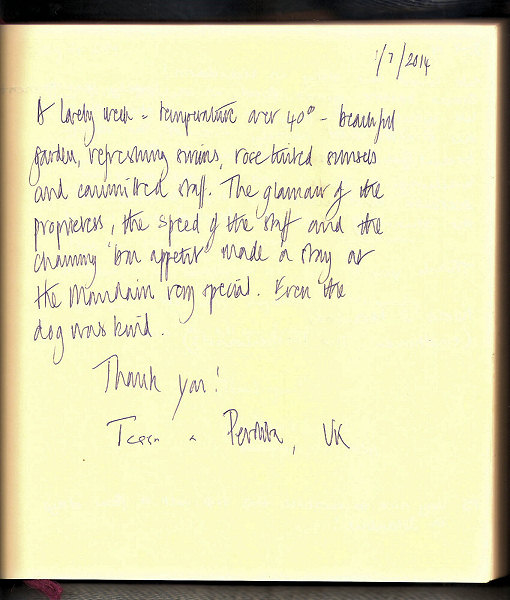 1/7/2014
A lovely week - temperature over 40° - beautiful
garden, refreshing swims, rose tinted sunsets
and committed staff. The glamour of the
proprietress, the speed of the staff and the
charming 'bon appetit' made a stay at
the very special. Even the
dog was kind.
Thank you!
UK